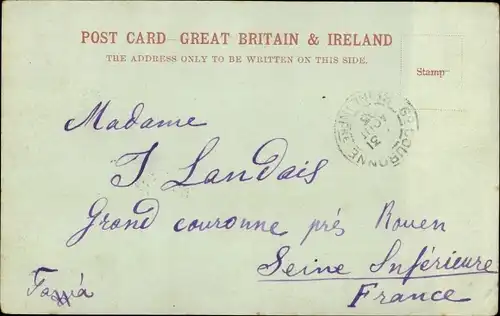 POST CARD—GREAT BRITAIN & IRELAND
THE ADDRESS ONLY TO BE WRITTEN ON THIS SIDE.
Stamp
COURONNE
31
Madame
J Landais
Grand couronne près Rouen
Seine Inférieure
France